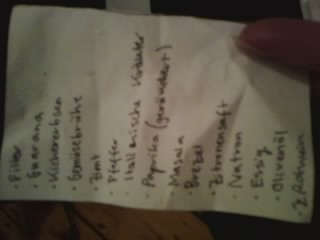 · Filter
· Guarana
· Kichererbsen
· Gemüsebrühe
· Zimt
· Pfeffer
· Italienische Kräuter
· Paprika (geräuchert)
· Masala
· Brezel
· Zitronensaft
· Natron
· Essig
· Olivenöl